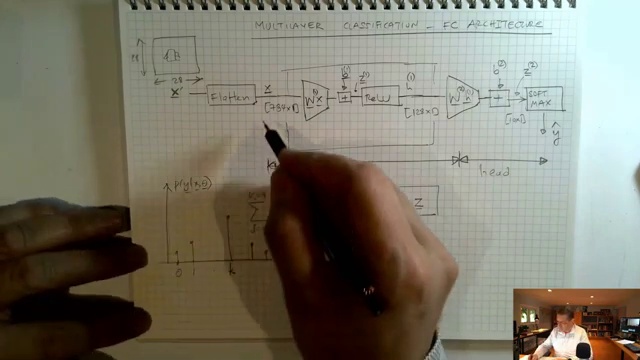 MULTILAYER CLASSIFICATION - FC ARCHITECTURE
28
28
X'
Flatten
x
[784x1]
W(1) x
b(1)
+
z(1)
ReLU
h(1)
[128x1]
b(2)
+
z(2)
SOFT
MAX
ŷ
head
p(y|x,
0 1 k
z